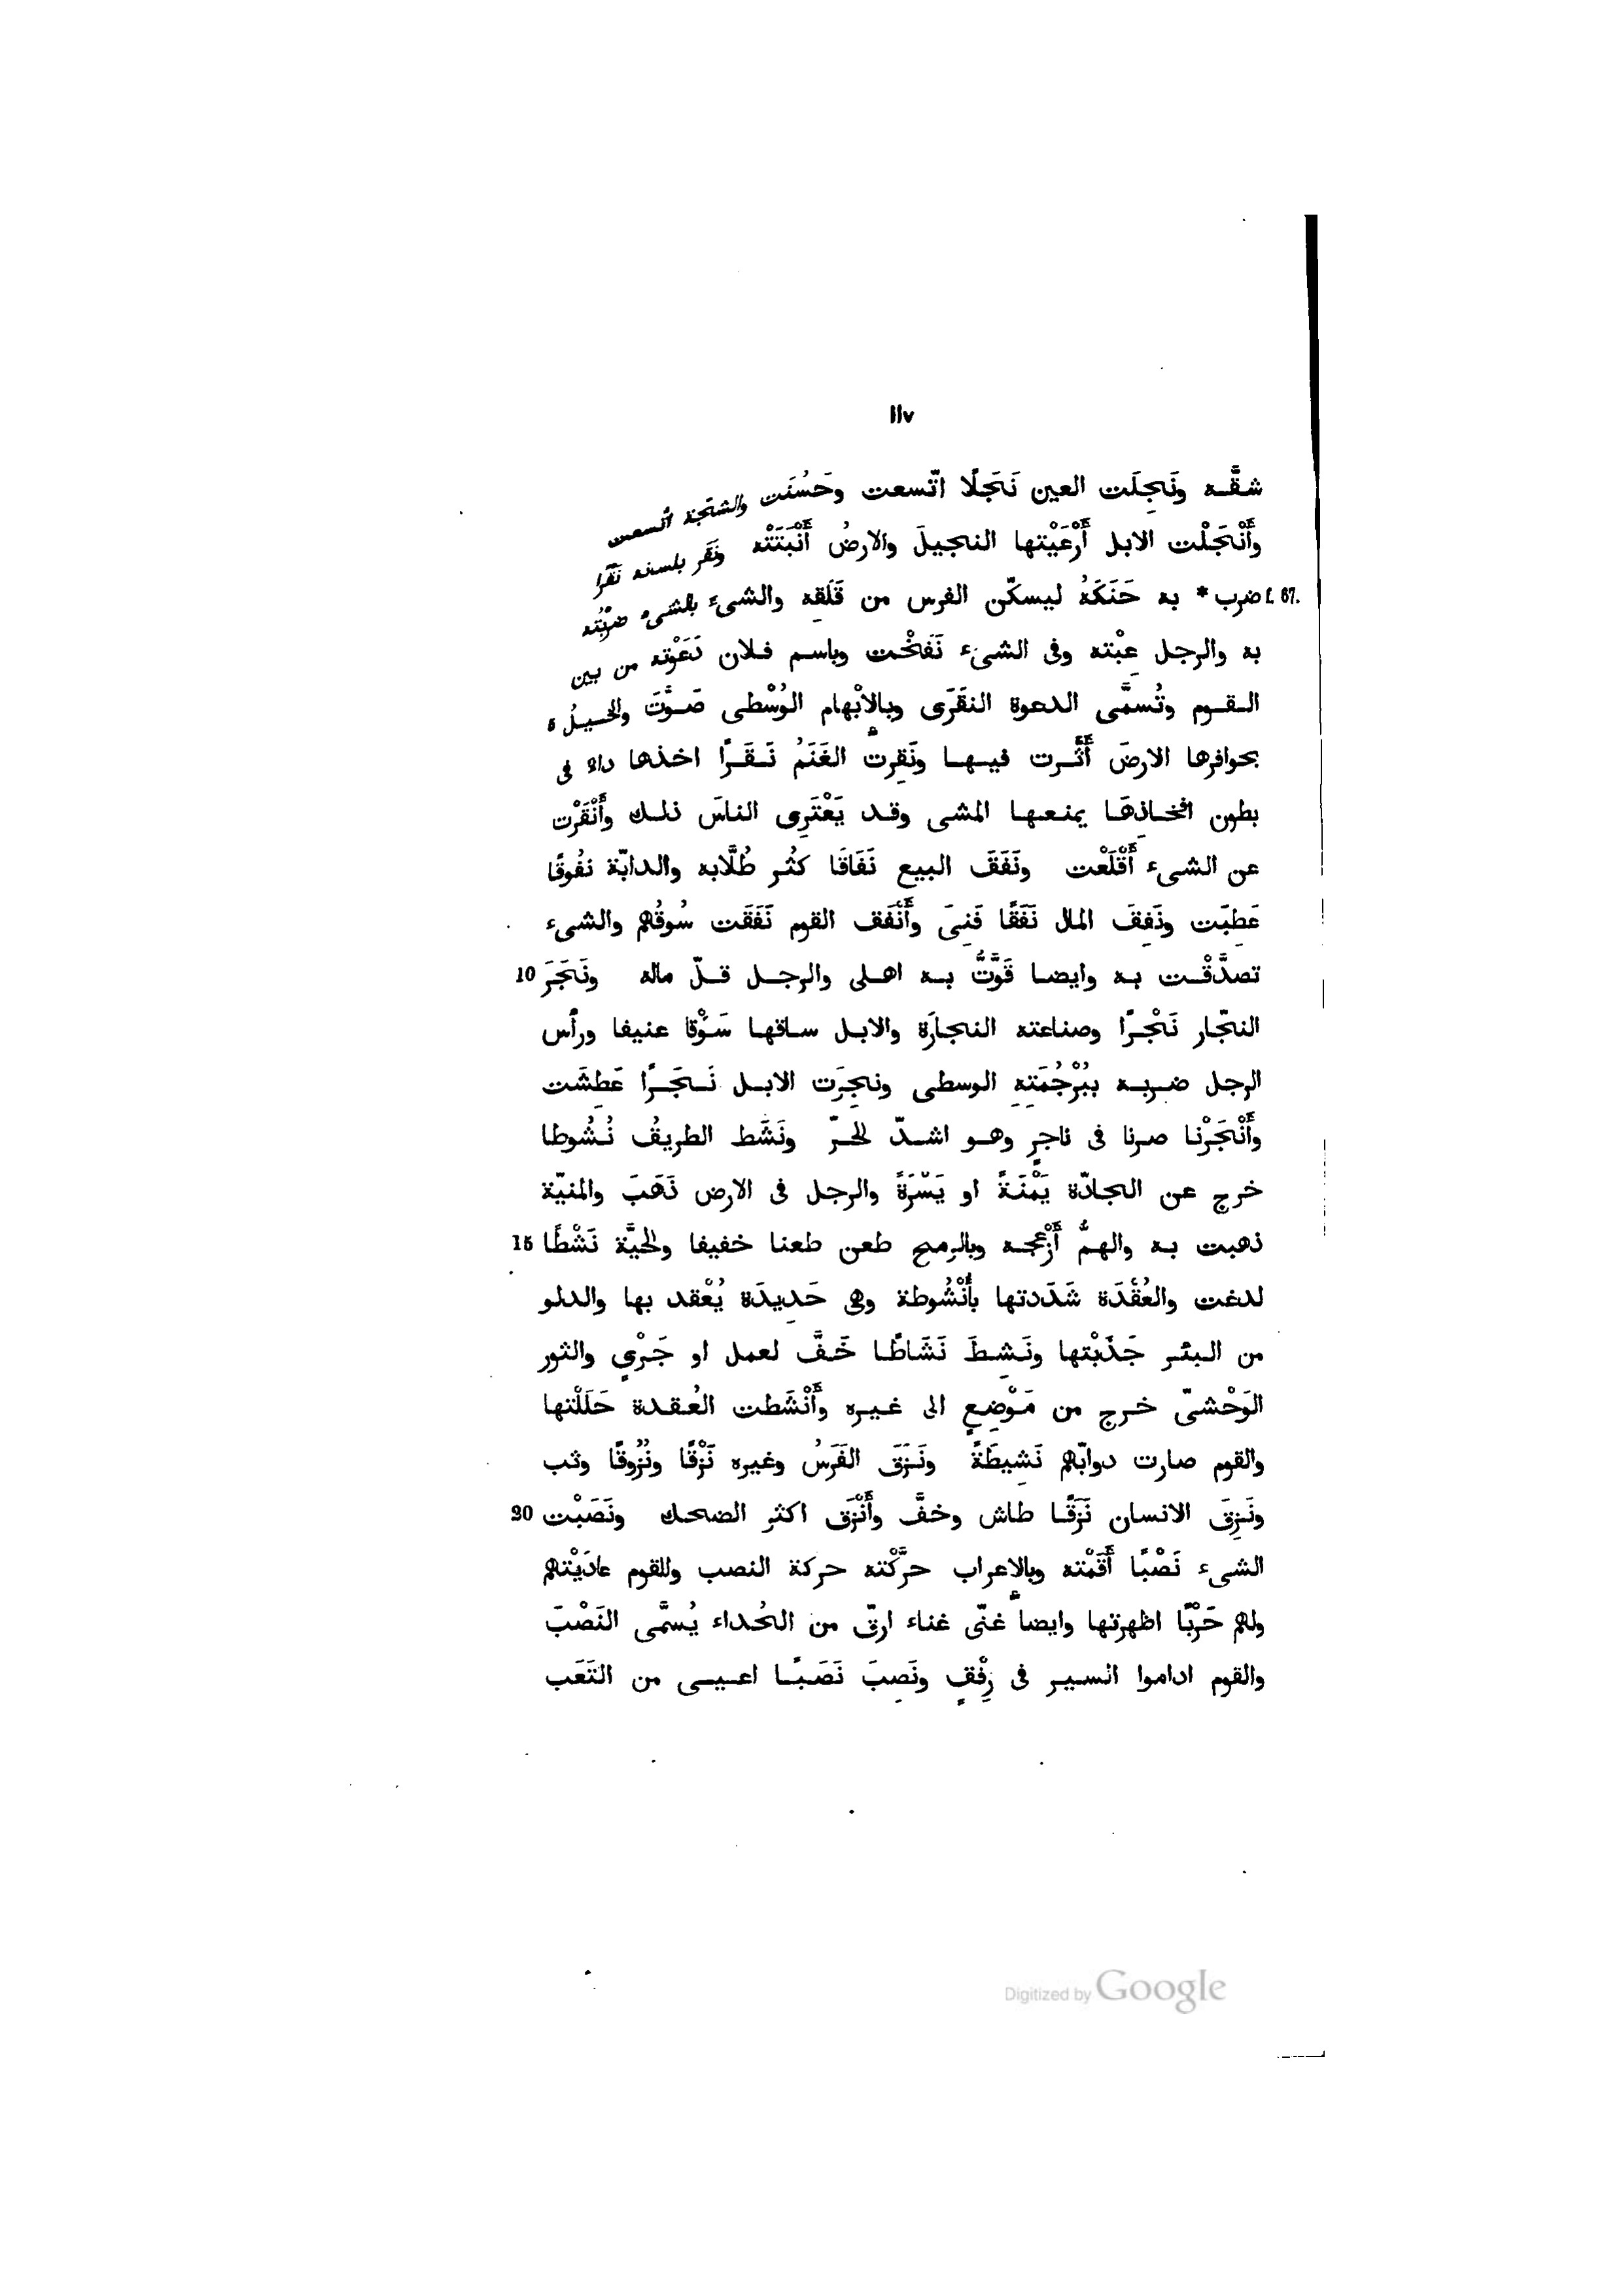 ١١٧
شقَّه ونَجِلَت العين نَجَلًا اتّسعت وحَسُنَت والشجّة اتّسعت
وأَنْجَلْت الابل أَرْعَيْتها النجيلَ والارضُ أَنْبَتَتْه ونَقَر بلسنه نَقْرا
f. 67. ضرب * به حَنَكَهُ ليسكّن الفرس من قَلَقِه والشىء بالشىء ضرَبْته
به والرجل عِبْته وفى الشىء نَفَخْت وباسم فلان دَعَوْته من بين
القوم وتُسمَّى الدعوة النقَرَى وبالإِبْهام الوُسْطى صَوَّتَ والخيلُ ٥
بحوافرها الارضَ أَثَّرت فيها ونَقِرت الغَنَمُ نَقَرًا اخذها داء فى
بطون افخاذِهَا يمنعها المشى وقد يَعْتَرِى الناسَ ذلك وأَنْقَرْت
عن الشىء أَقْلَعْت ونَفَقَ البيع نَفَاقًا كثُر طُلَّابه والدابّة نفُوقًا
عَطِبَت ونَفِقَ المال نَفَقًا فَنِىَ وأَنْفَق القوم نَفَقَت سُوقُهم والشىء
تصدَّقْت به وايضا قَوَّتُّ به اهلى والرجل قلّ ماله ونَجَرَ 10
النجّار نَجْرًا وصناعته النجارَة والابل ساقها سَوْقا عنيفا ورأْس
الرجل ضربه بِبُرْجُمَتِه الوسطى ونجِرَت الابل نَجَرًا عَطِشَت
وأَنْجَرْنا صرنا فى ناجرٍ وهو اشدّ الحرّ ونَشَط الطريقُ نُشُوطا
خرج عن الجادّة يَمْنَةً او يَسْرَةً والرجل فى الارض ذَهَبَ والمنيّة
ذهبت به والهمُّ أَزْعجه وبالرمح طعن طعنا خفيفا والحيَّة نَشْطًا 15
لدغت والعُقْدَة شَدَدتها بأُنْشُوطة وهى حَدِيدَة يُعْقد بها والدلو
من البئر جَذَبْتها ونَشِطَ نَشَاطًا خَفَّ لعمل او جَرْيٍ والثور
الوَحْشىّ خرج من مَوْضِعٍ الى غيره وأَنْشَطت العُقدة حَلَلْتها
والقوم صارت دوابّهم نَشِيطَةً ونَزَقَ الفَرَسُ وغيره نَزْقًا ونُزوقًا وثب
ونَزِقَ الانسان نَزَقًا طاش وخفَّ وأَنْزَق اكثر الضحك ونَصَبْت 20
الشىء نَصْبًا أَقَمْته وبالإعراب حرَّكْته حركة النصب وللقوم عادَيْتهم
ولهم حَرْبًا اظهرتها وايضاً غنّى غناء ارقّ من الحُداء يُسمَّى النَصْبَ
والقوم اداموا السير فى رِفْقٍ ونَصِبَ نَصَبًا اعيى من التَعَب
Digitized by Google